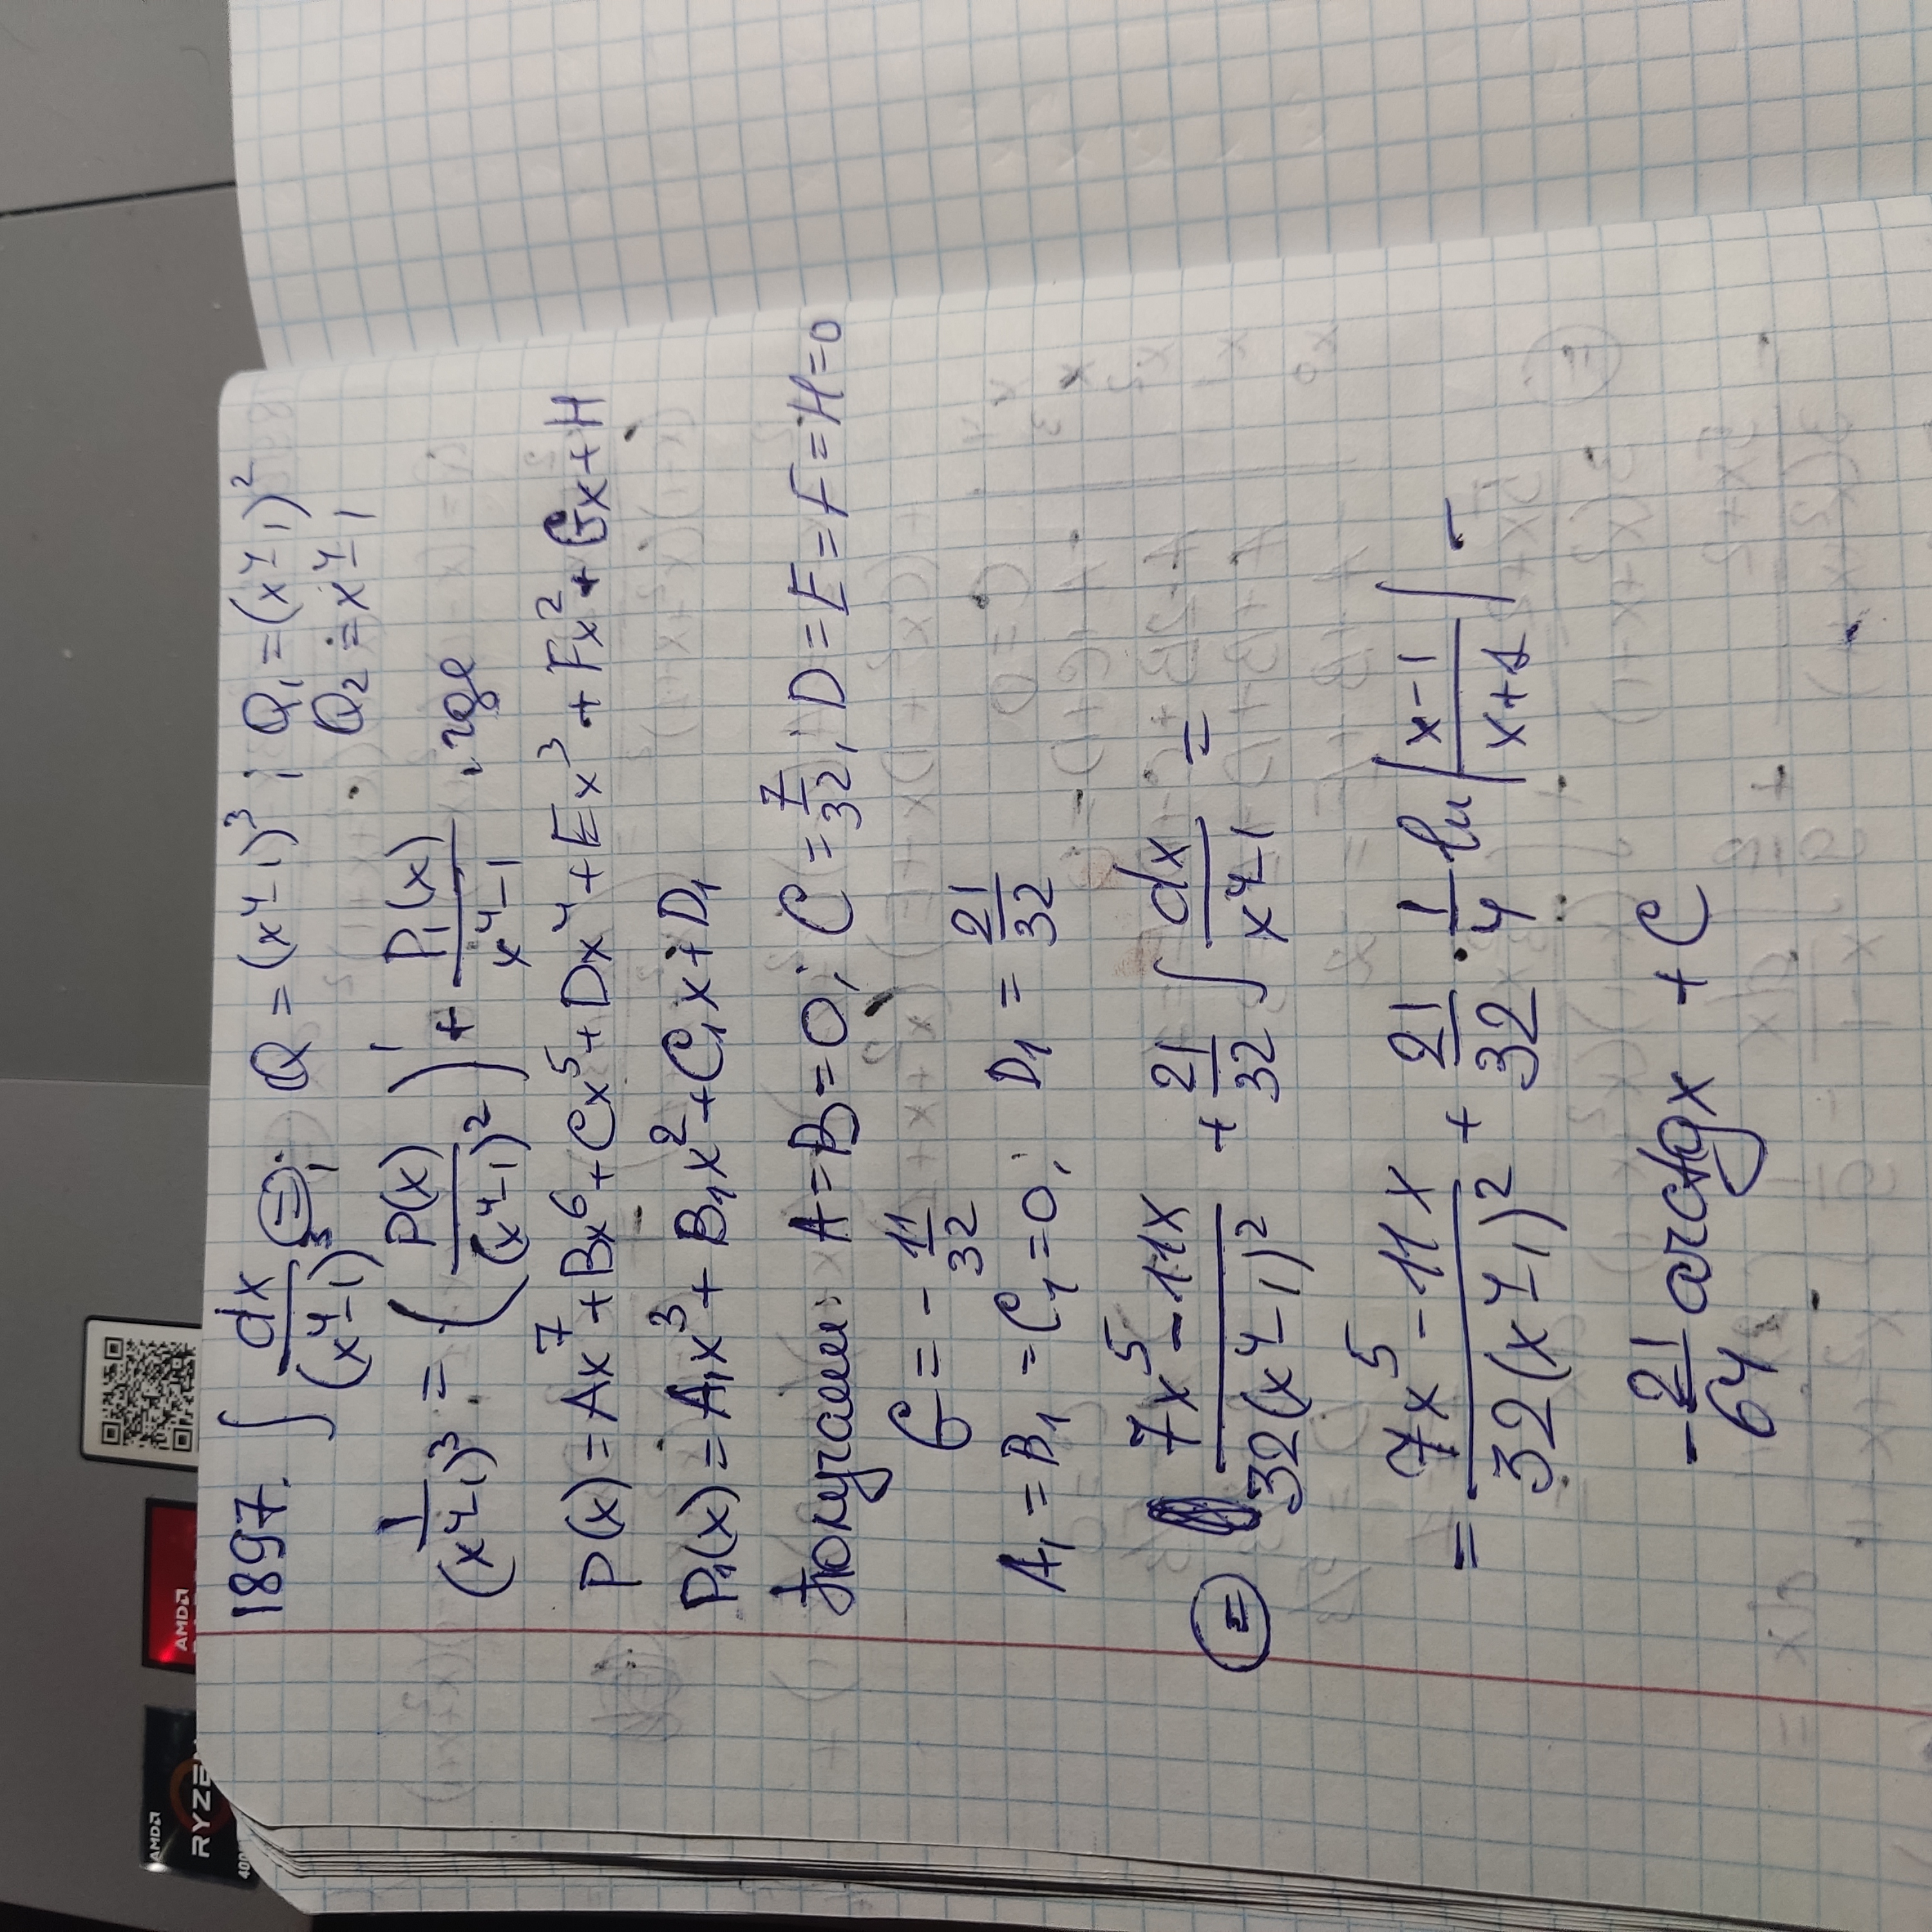 AMD
RYZEN
AMD
1897. ∫ dx/(x⁴-1)³ ⊜; Q = (x⁴-1)³; Q₁ = (x⁴-1)²
Q₂ = x⁴-1
1/(x⁴-1)³ = (P(x)/(x⁴-1)²)' + P₁(x)/(x⁴-1), где
P(x) = Ax⁷ + Bx⁶ + Cx⁵ + Dx⁴ + Ex³ + Fx² + Gx + H
P₁(x) = A₁x³ + B₁x² + C₁x + D₁
Получаем: A = B = 0; C = 7/32; D = E = F = H = 0
G = - 11/32
A₁ = B₁ = C₁ = 0; D₁ = 21/32
⊜ (7x⁵ - 11x)/(32(x⁴-1)²) + 21/32 ∫ dx/(x⁴-1) =
= (7x⁵ - 11x)/(32(x⁴-1)²) + 21/32 · 1/4 ln |(x-1)/(x+1)| -
- 21/64 arctgx + C